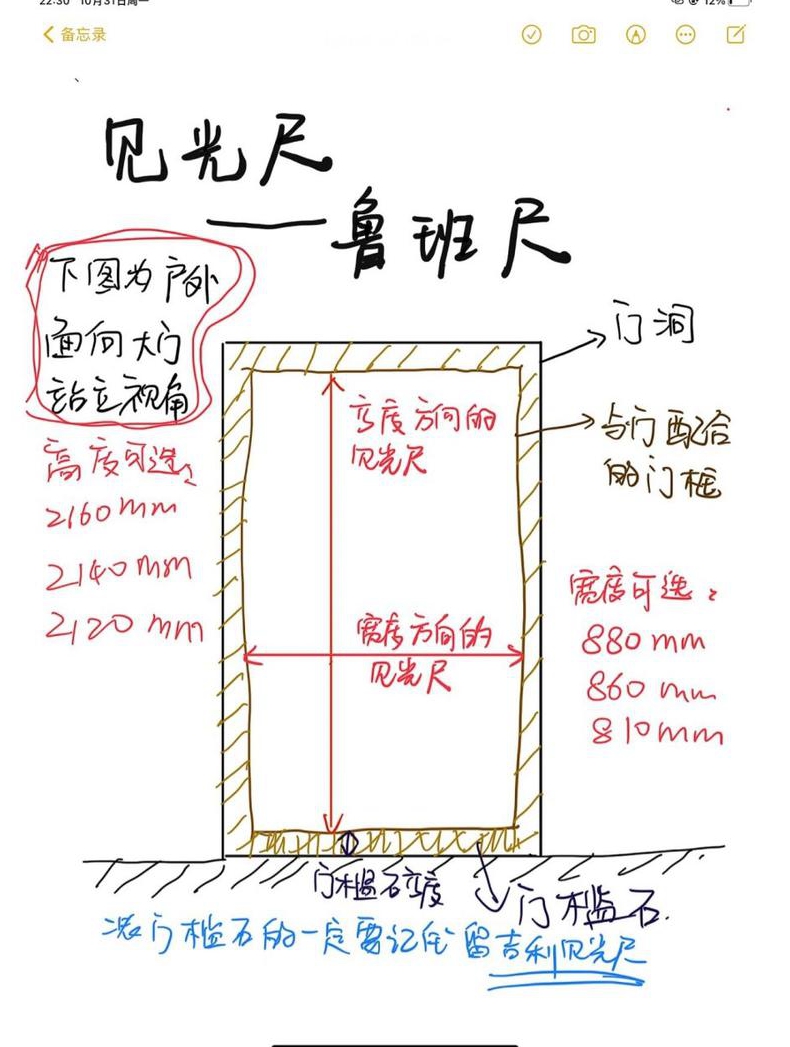 22:30 10月31日周一
12%
备忘录
见光尺
——鲁班尺
下图为户外
面向大门
站立视角
门洞
与门配合
的门框
高度方向的
见光尺
高度可选:
2160mm
2140mm
2120mm
宽度方向的
见光尺
宽度可选:
880mm
860mm
810mm
门槛石高度
门槛石.
门槛石的一定要记住留吉利见光尺